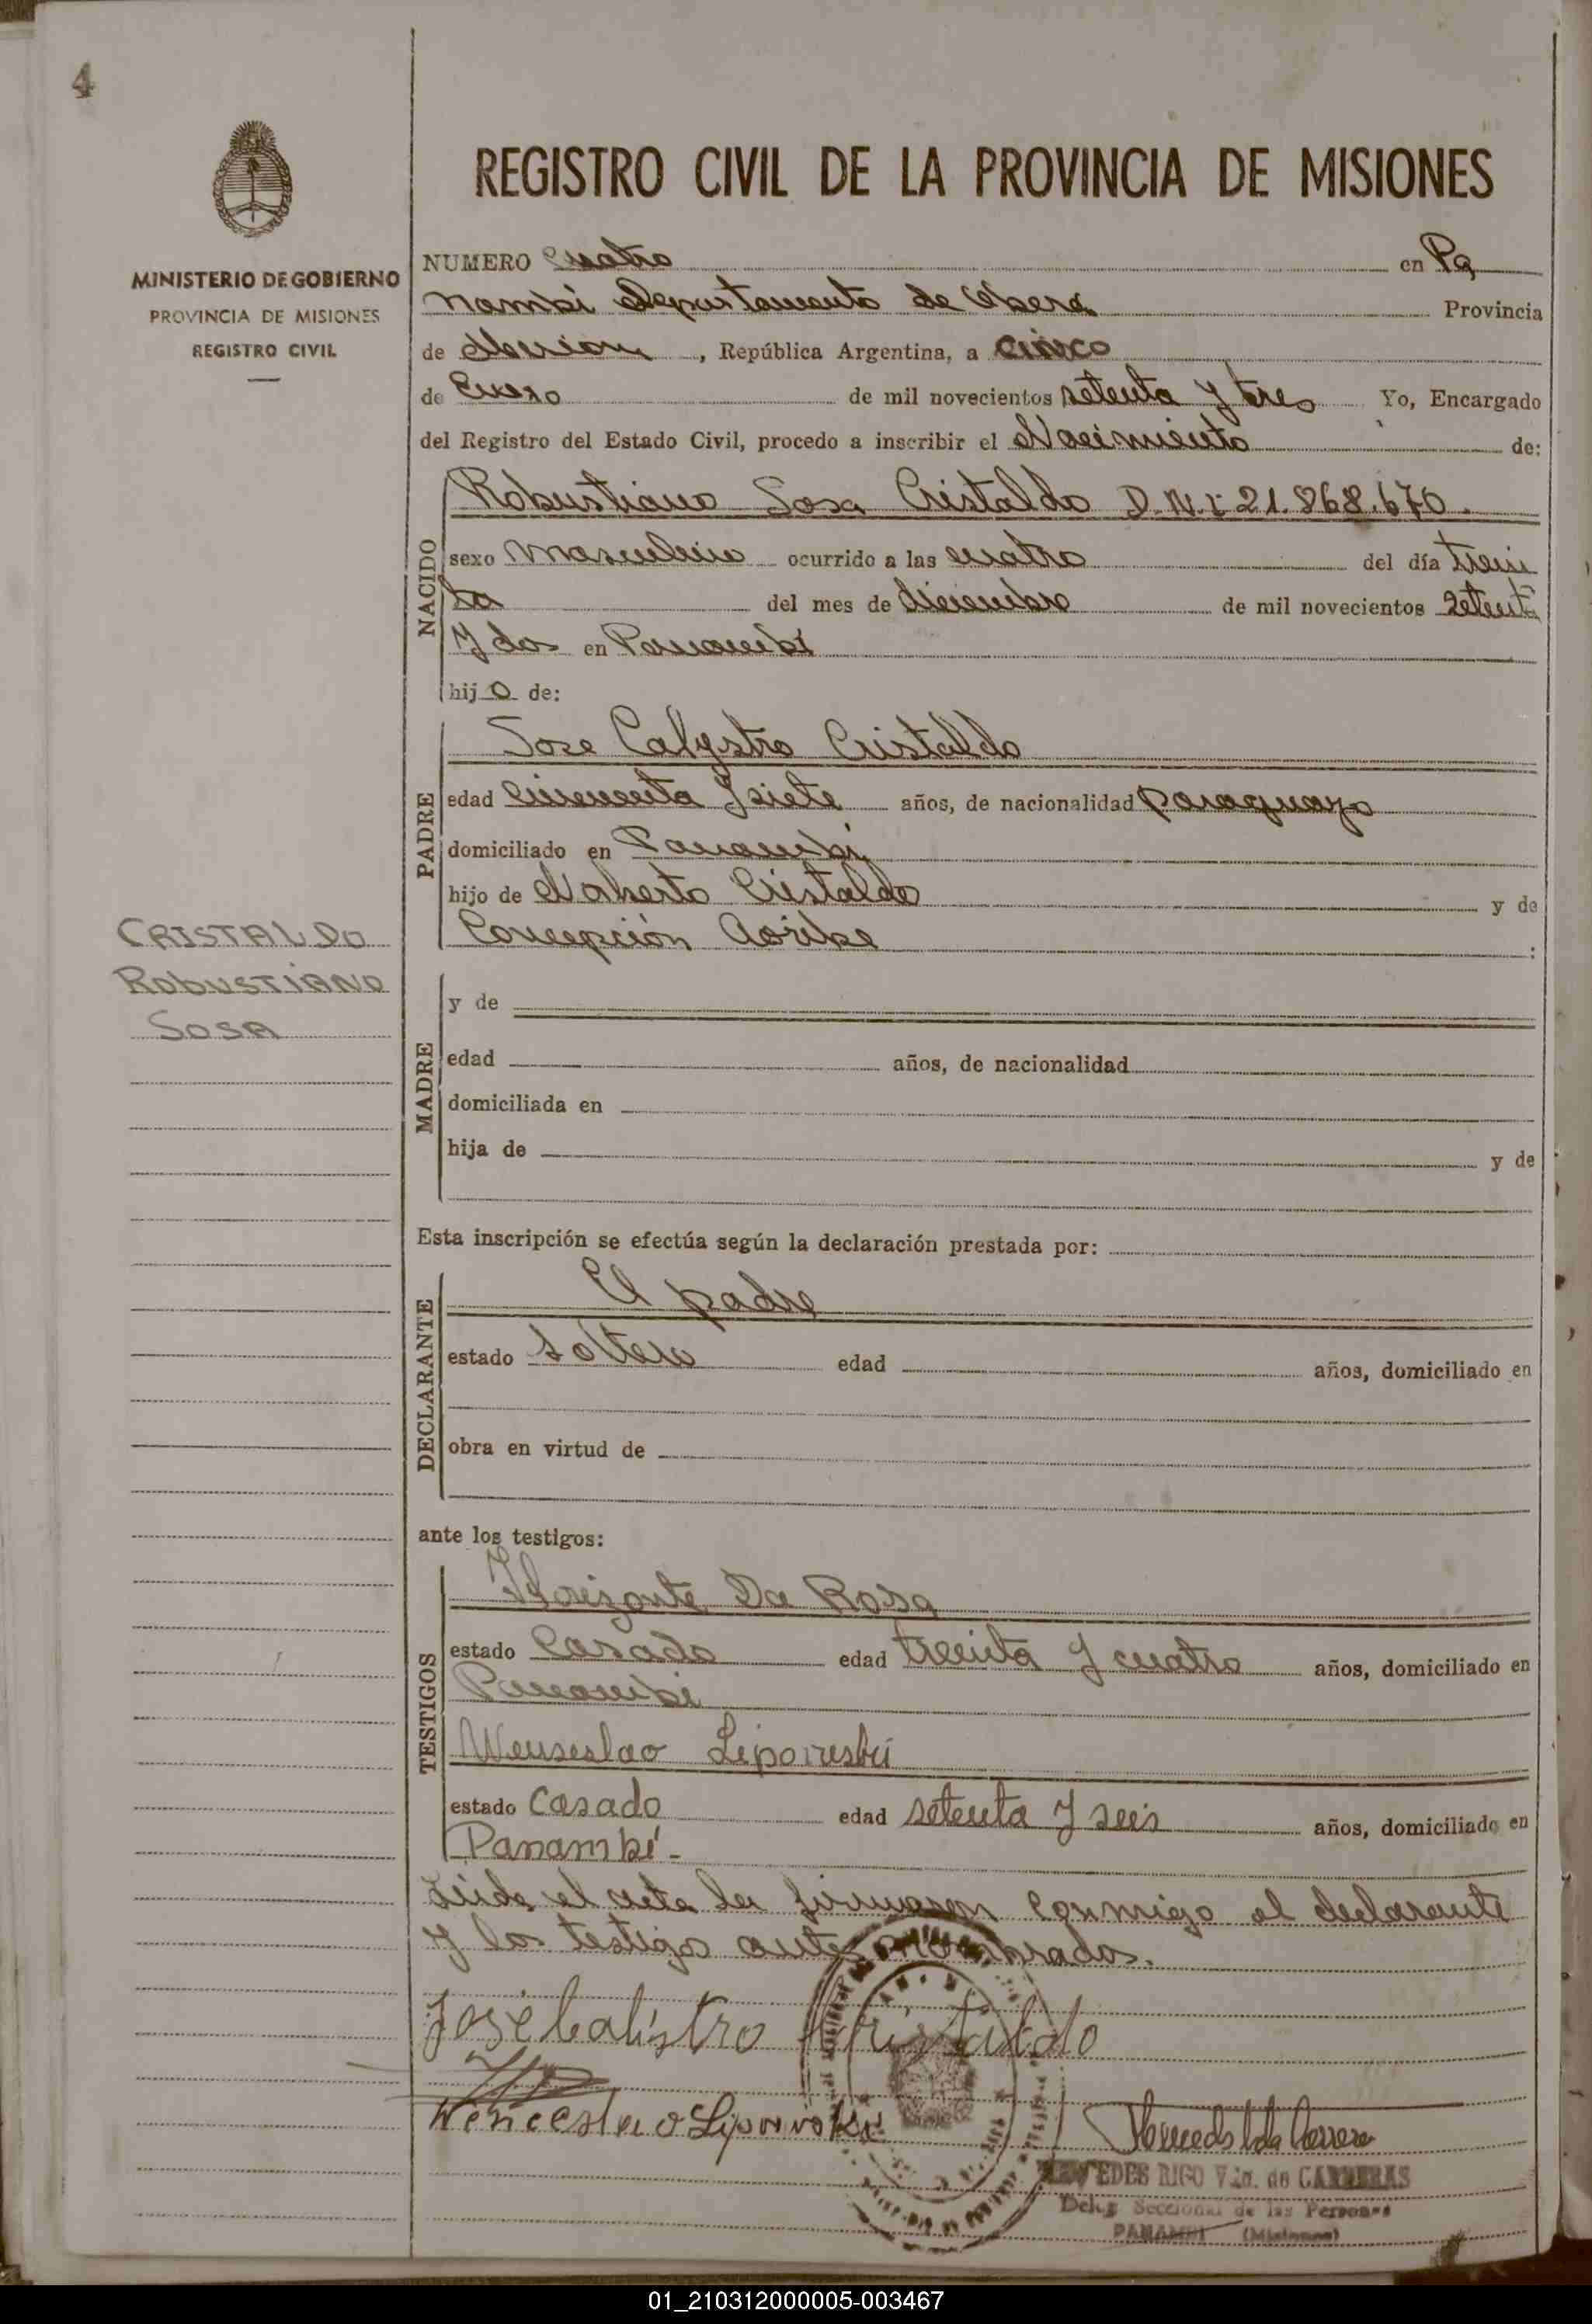 4
MINISTERIO DE GOBIERNO
PROVINCIA DE MISIONES
REGISTRO CIVIL
CRISTALDO
ROBUSTIANO
SOSA
REGISTRO CIVIL DE LA PROVINCIA DE MISIONES
NUMERO Cuatro en Pa
nambi Departamento de Obera Provincia
de Misiones, República Argentina, a cinco
de Enero de mil novecientos setenta y tres Yo, Encargado
del Registro del Estado Civil, procedo a inscribir el Nacimiento de:
NACIDO
Robustiano Sosa Cristaldo D.N.I 21.868.670.
sexo Masculino ocurrido a las cuatro del día trein
ta del mes de diciembre de mil novecientos setenta
y dos en Panambi
hijo de:
PADRE
Jose Calystro Cristaldo
edad cincuenta y siete años, de nacionalidad paraguayo
domiciliado en Panambi
hijo de Cristaldo y de
Concepción
MADRE
y de
edad años, de nacionalidad
domiciliada en
hija de y de
Esta inscripción se efectúa según la declaración prestada por:
DECLARANTE
El padre
estado soltero edad años, domiciliado en
obra en virtud de
ante los testigos:
TESTIGOS
Da Rosa
estado Casado edad treinta y cuatro años, domiciliado en
Panambi
Wenseslao
estado Casado edad setenta y seis años, domiciliado en
Panambí -
Leída el acta la firmaron conmigo el declarante
y los testigos antes nombrados.
José Calistro Cristaldo
Wenceslao
MERCEDES RIGO Vda. de CARRERAS
Deleg. Seccional de las Personas
PANAMBI (Misiones)
01_210312000005-003467